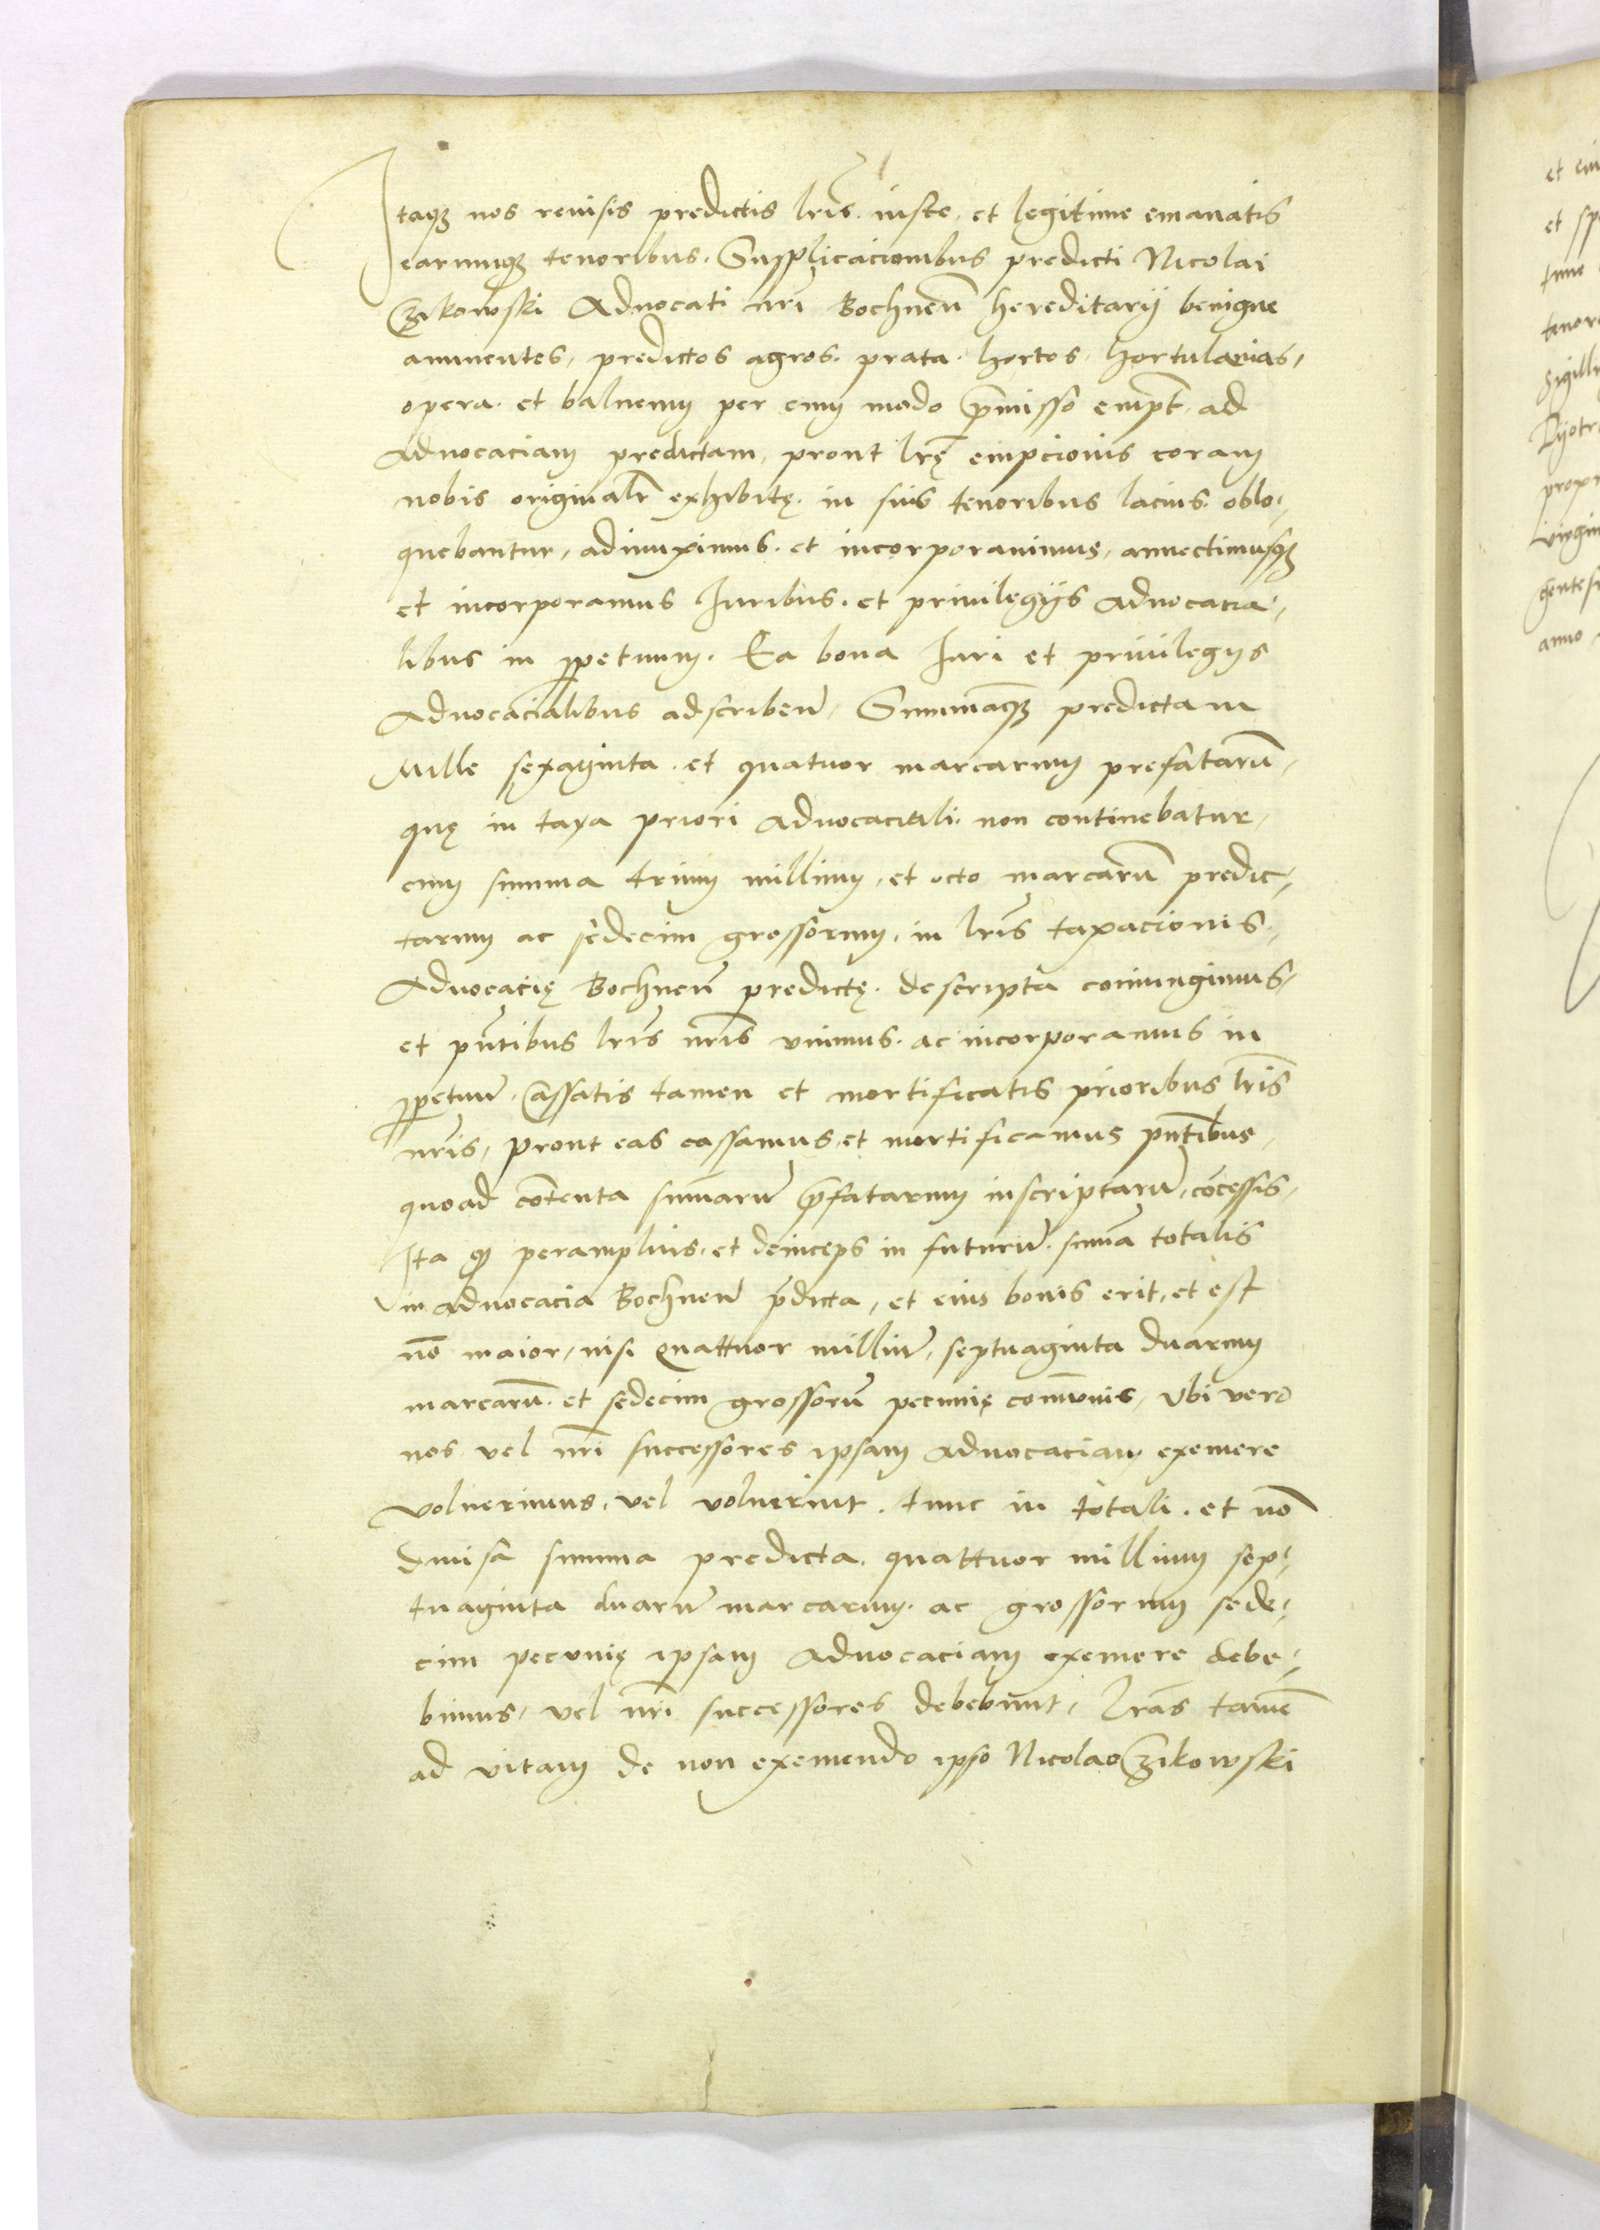 Itaqȝ nos reuisis predictis lr̃is. iuste. et legitime emanatis
earumqȝ tenoribus. Supplicacionibus predicti Nicolai
Czikowski Aduocati nr̃i Bochneñ hereditarij benigne
annuentes, predictos agros. prata. hortos. hortulanias,
opera. et balneum per eum modo p̃misso empt̃. ad
Aduocaciam predictam, prout lr̃ę empcionis coram
nobis originalr̃ exhibitę. in suis tenoribus lacius. oblo-
quebantur, adiunximus. et incorporauimus, annectimusqȝ
et incorporamus Iuribus. et priuilegijs aduocacia-
libus in ꝑpetuum. Ea bona Iuri et priuilegijs
Aduocacialibus adscribeñ, Summaqȝ predictam
Mille sexaginta. et quatuor marcarum prefatarũ,
quę in taxa priori aduocaciali. non continebatur,
cum summa trium millium, et octo marcarũ predic-
tarum ac sedecim grossorum, in lr̃is taxacionis
Aduocacię Bochneñ predictę. descripta coniungimus,
et pñtibus lr̃is nr̃is vnimus. ac incorporamus in
ꝑpetuũ. Cassatis tamen et mortificatis prioribus lr̃is
nr̃is, prout eas cassamus, et mortificamus pñtibus,
quoad cõtenta sum̃arũ p̃fatarum inscriptarũ, cõcessis,
Ita qȝ peramplius, et deinceps in futurũ. sum̃a totalis
in aduocacia Bochneñ p̃dicta, et eius bonis erit, et est
nõ maior, nisi Quattuor milliũ, septuaginta duarum
marcarũ. et sedecim grossorũ pecunię com̃unis, Vbi vero
nos vel nr̃i successores ipsam aduocaciam exemere
voluerimus, vel voluerint. tunc in totali. et nõ
diuisa summa predicta. quattuor millium sep-
tuaginta duarũ marcarum. ac grossorum sede-
cim pecunię ipsam aduocaciam exemere debe-
bimus, vel nr̃i successores debebunt, lr̃as tamẽ
ad vitam de non exemendo ipso Nicolao Czikowski